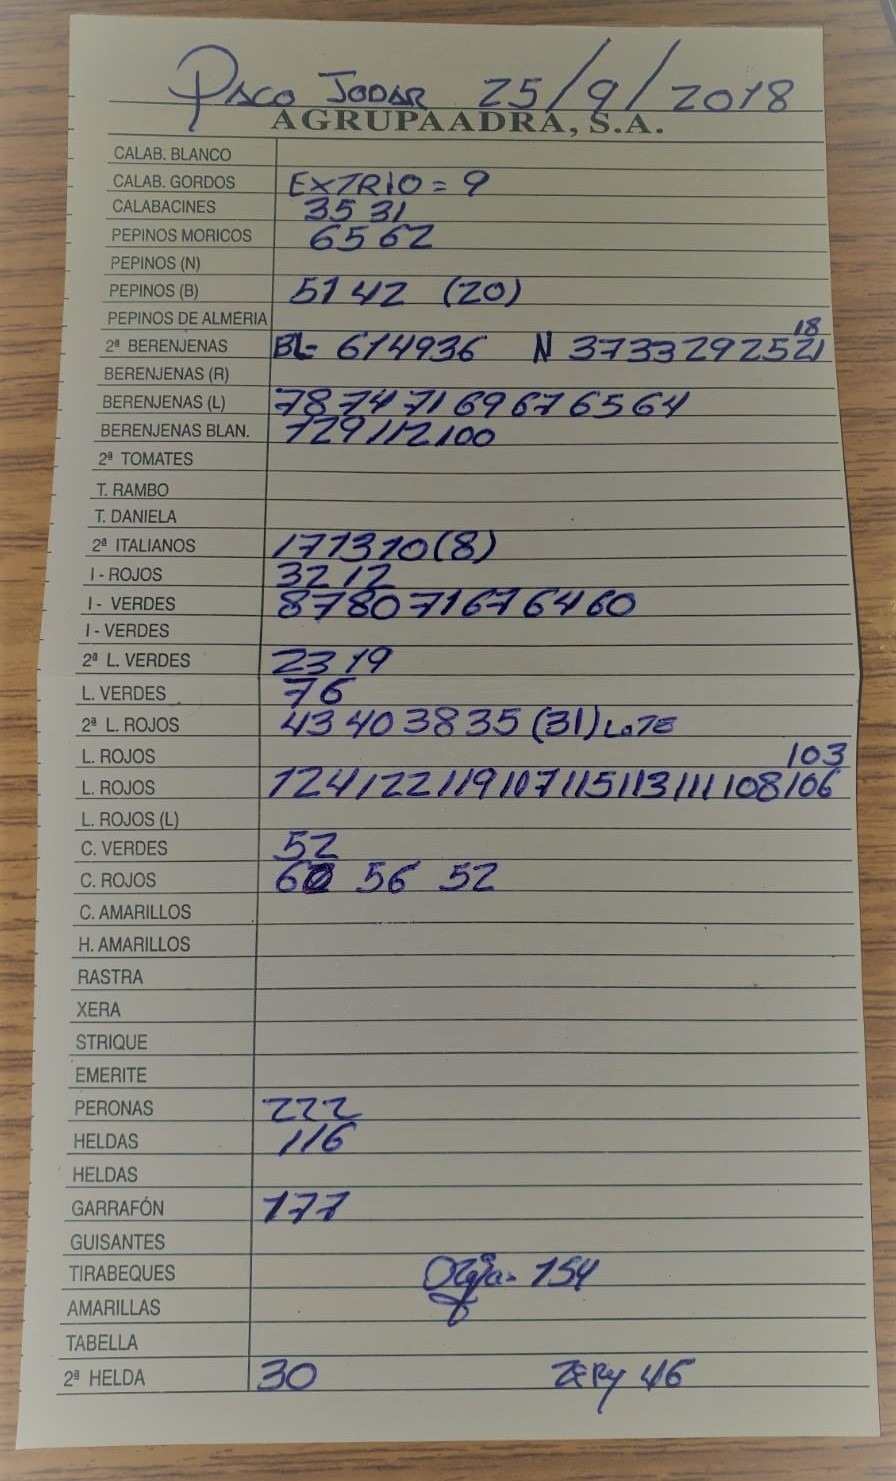 Paco Jodar 25/9/2018
AGRUPAADRA, S.A.
CALAB. BLANCO
CALAB. GORDOS EXTRIO = 9
CALABACINES 35 31
PEPINOS MORICOS 65 62
PEPINOS (N)
PEPINOS (B) 51 42 (20)
PEPINOS DE ALMERIA
18
2ª BERENJENAS BL= 61 49 36 N 37 33 29 25 21
BERENJENAS (R)
BERENJENAS (L) 78 74 71 69 67 65 64
BERENJENAS BLAN. 129 112 100
2ª TOMATES
T. RAMBO
T. DANIELA
2ª ITALIANOS 17 13 10 (8)
I - ROJOS 32 12
I - VERDES 87 80 71 67 64 60
I - VERDES
2ª L. VERDES 23 19
L. VERDES 76
2ª L. ROJOS 43 40 38 35 (31) LOTE
L. ROJOS 103
L. ROJOS 124 122 119 107 115 113 111 108 106
L. ROJOS (L)
C. VERDES 52
C. ROJOS 60 56 52
C. AMARILLOS
H. AMARILLOS
RASTRA
XERA
STRIQUE
EMERITE
PERONAS 222
HELDAS 116
HELDAS
GARRAFÓN 177
GUISANTES
TIRABEQUES 154
AMARILLAS
TABELLA
2ª HELDA 30 ZERY 46